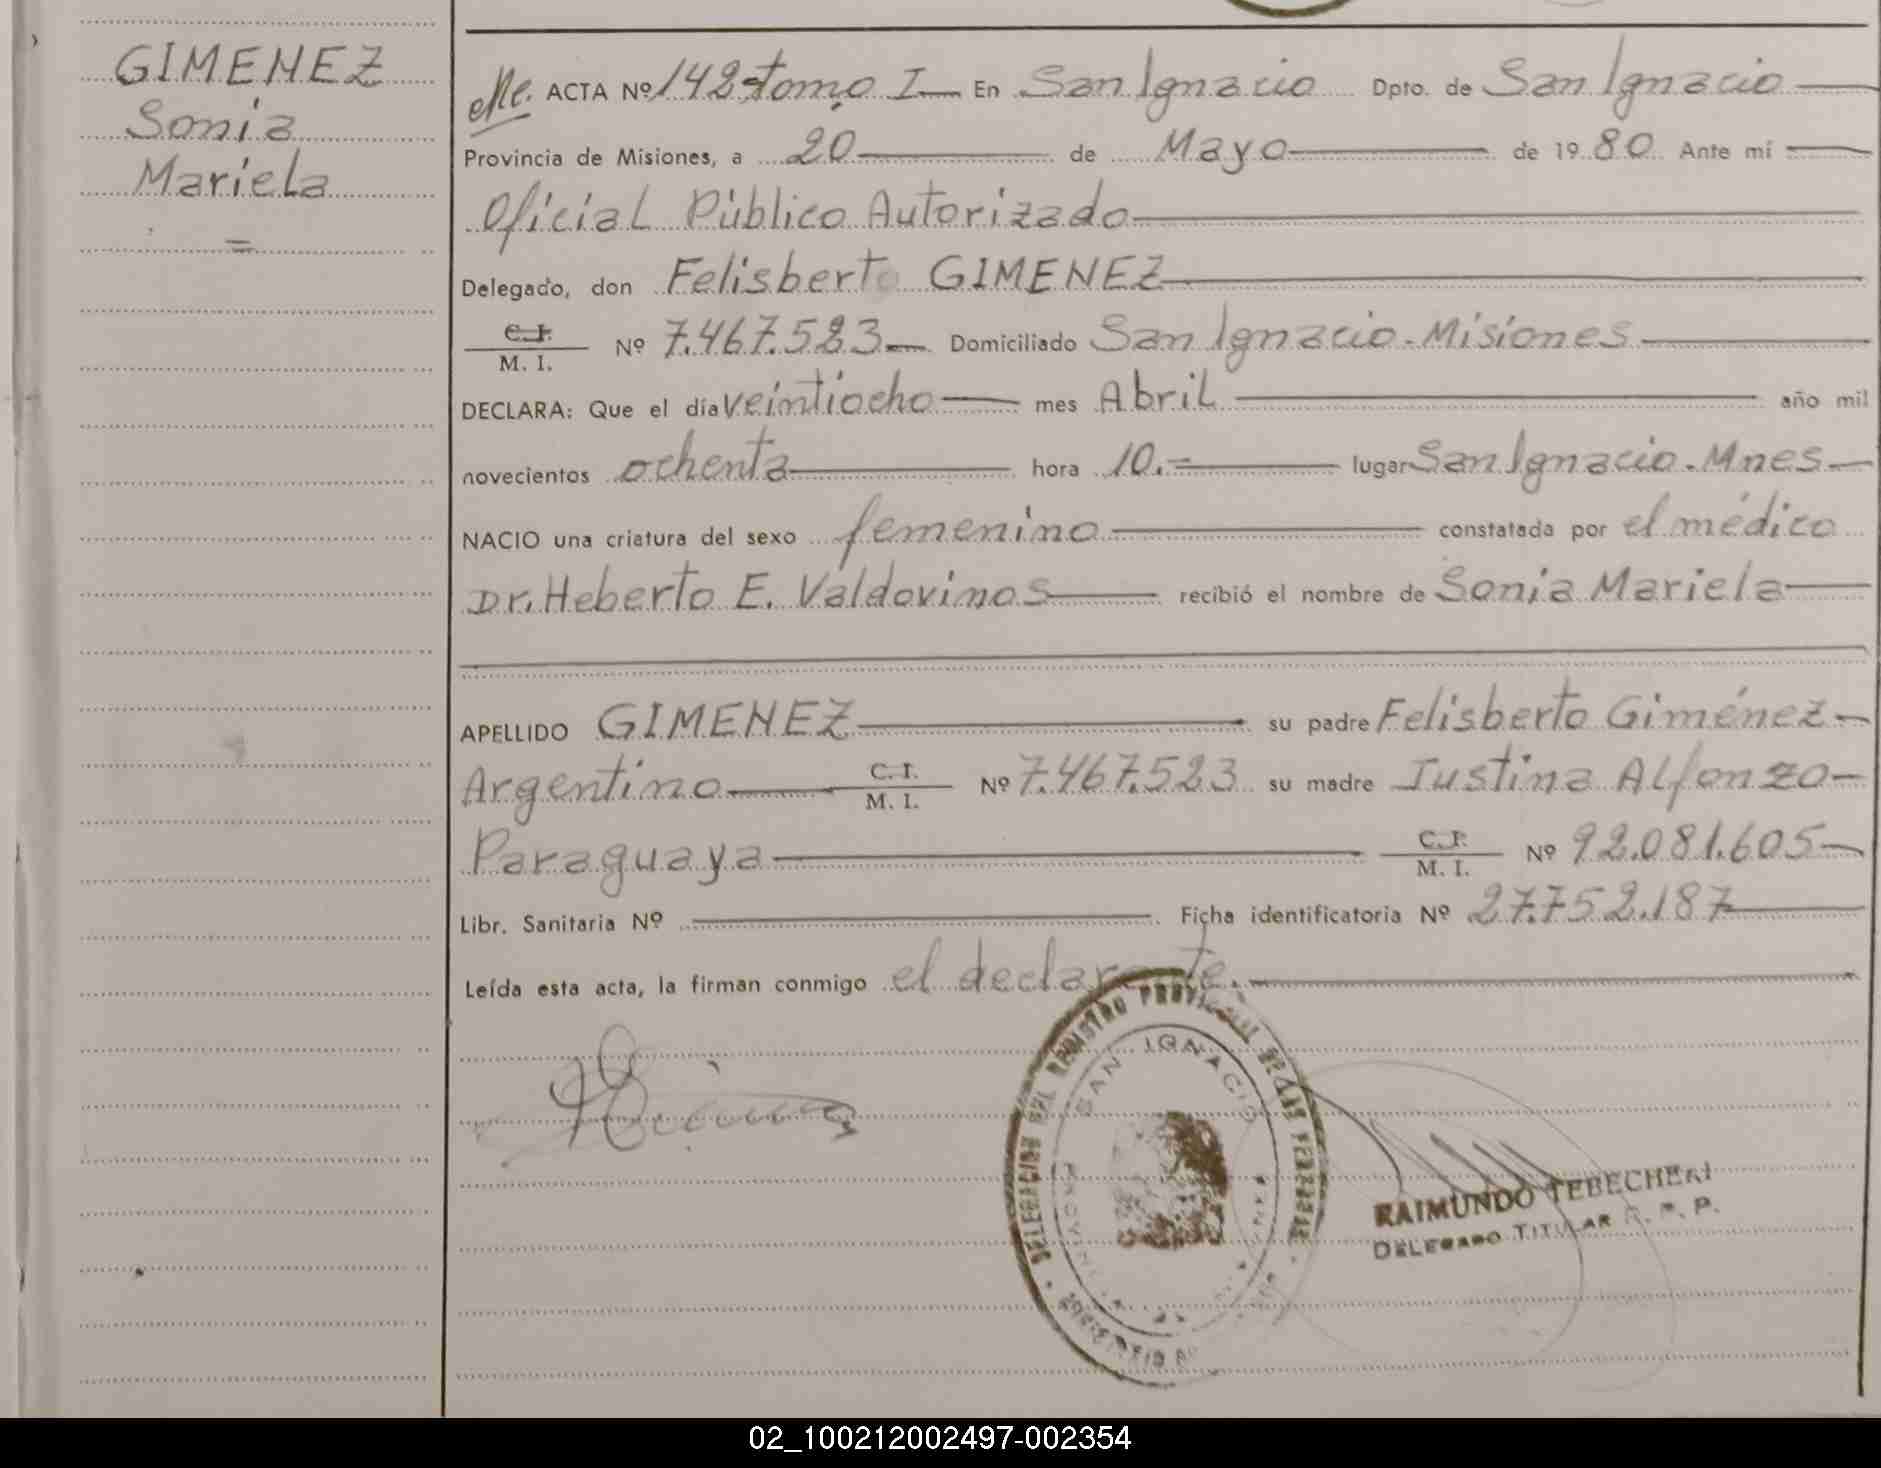 GIMENEZ
Sonia
Mariela
ACTA Nº 142 tomo I En San Ignacio Dpto. de San Ignacio
Provincia de Misiones, a 20 de Mayo de 1980 Ante mí
Oficial Público Autorizado
Delegado, don Felisberto GIMENEZ
C. I.
M. I. Nº 7.467.523 Domiciliado San Ignacio-Misiones
DECLARA: Que el día veintiocho mes Abril año mil
novecientos ochenta hora 10.- lugar San Ignacio-Mnes
NACIO una criatura del sexo femenino constatada por el médico
Dr. Heberto E. Valdovinos recibió el nombre de Sonia Mariela
APELLIDO GIMENEZ su padre Felisberto Giménez
Argentino C. I. M. I. Nº 7.467.523 su madre Justina Alfonzo
Paraguaya C. I. M. I. Nº 92.081.605
Libr. Sanitaria Nº Ficha identificatoria Nº 27.752.187
Leída esta acta, la firman conmigo el declarante.
DELEGACION DEL REGISTRO PROVINCIAL DE LAS PERSONAS
SAN IGNACIO
PROVINCIA
RAIMUNDO TEBECHERI
DELEGADO TITULAR R. P. P.
02_100212002497-002354